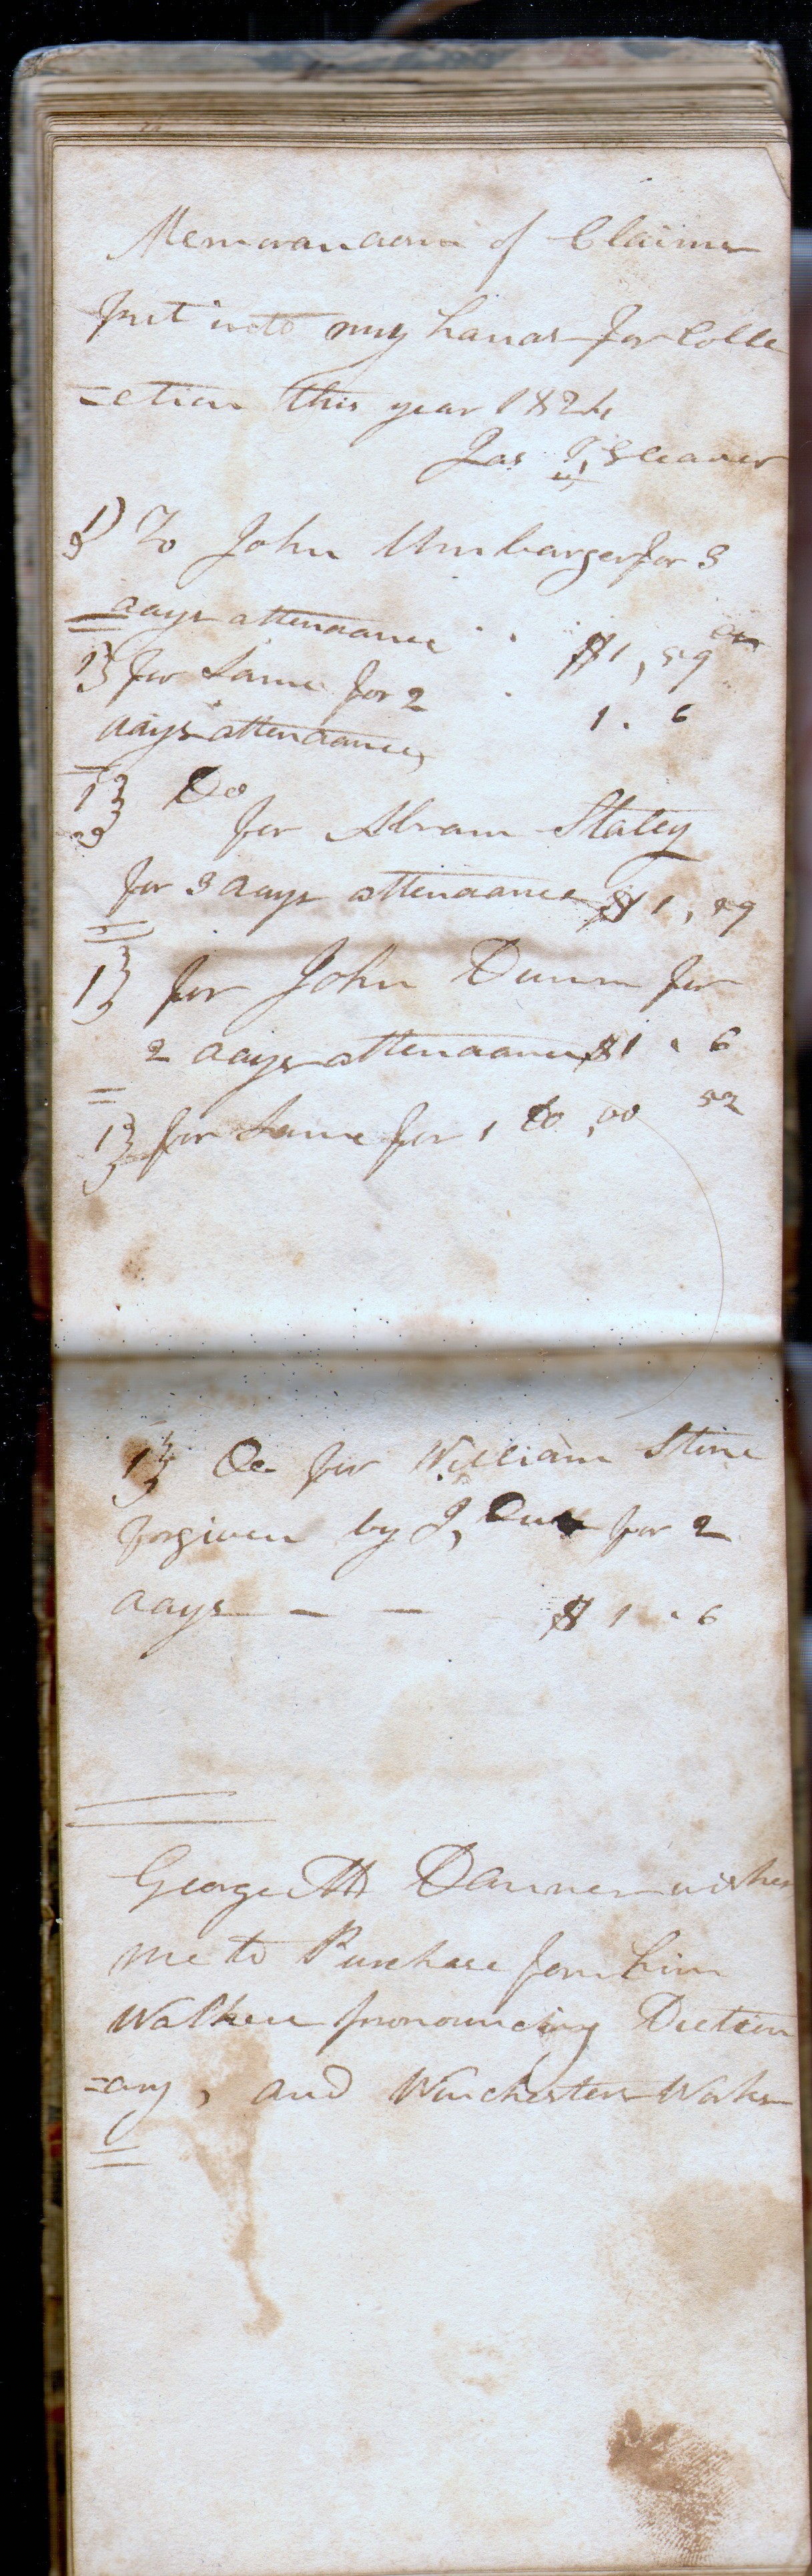 Memorandom of Claims
put into my hands for Colle
=ction this year 1824
Jas
1) To John Umbarger for 3
days attendance . . $1,59
1} for Same for 2 .
days attendance, 1. 6
1} Do
for Abram Staley
for 3 days attendance $1,59
1} for John Dunn for
2 days attendance $1 . 6
1} for Same for 1 Do ,00 52
1} Do for William Stine
forgiven by J, for 2
days — — $1 . 6
George Danner wishes
me to Purchase for him
Walker pronouncing Diction
=ary, and Winchesters Works